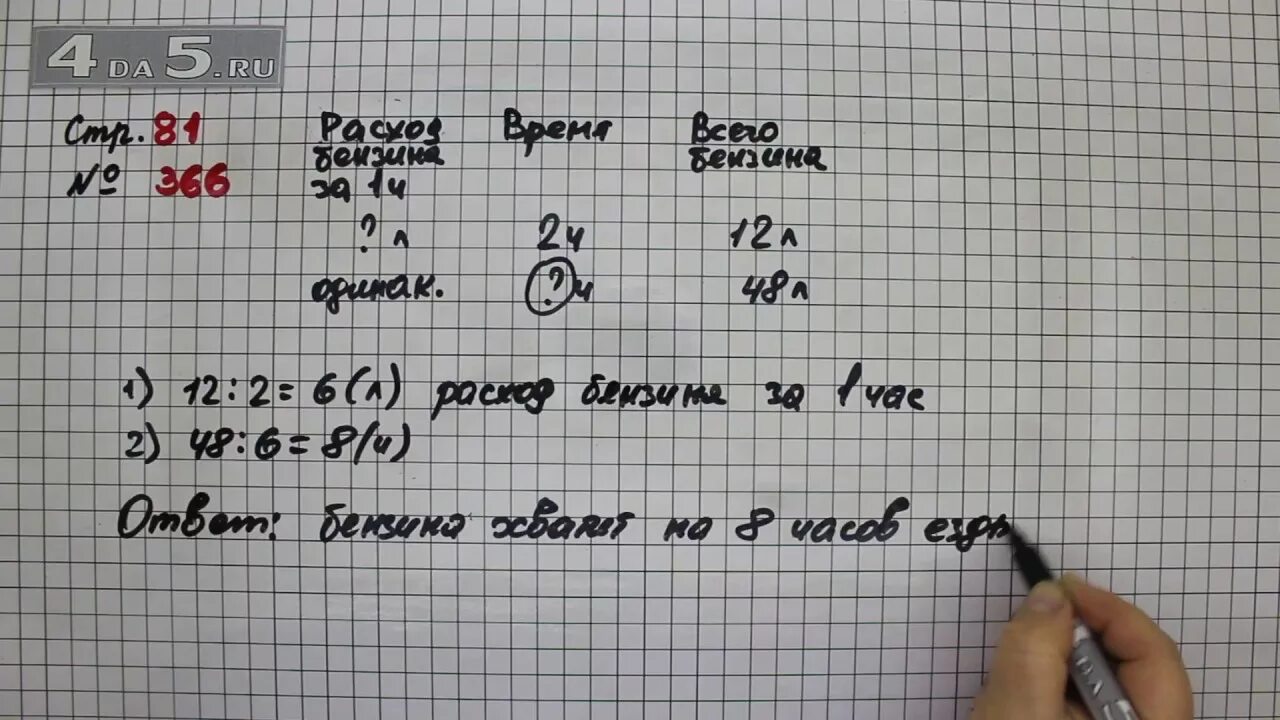 4DA5.RU
Стр. 81
№ 366
Расход бензина за 1ч
Время
Всего бензина
? л 2ч 12л
одинак. ?ч 48л
1) 12:2=6(л) расход бензина за 1 час
2) 48:6=8(ч)
Ответ: бензина хватит на 8 часов езды
DA5